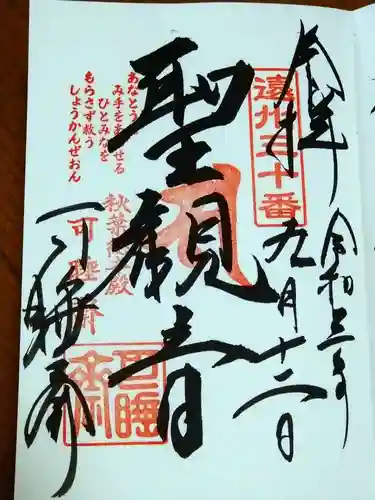 奉拝
令和三年
九月十二日
遠州三十番
聖観世音
あなとう
み手をあませる
ひとみなを
もらさず救う
しょうかんぜおん
秋葉總本殿
可睡斎
可睡斎